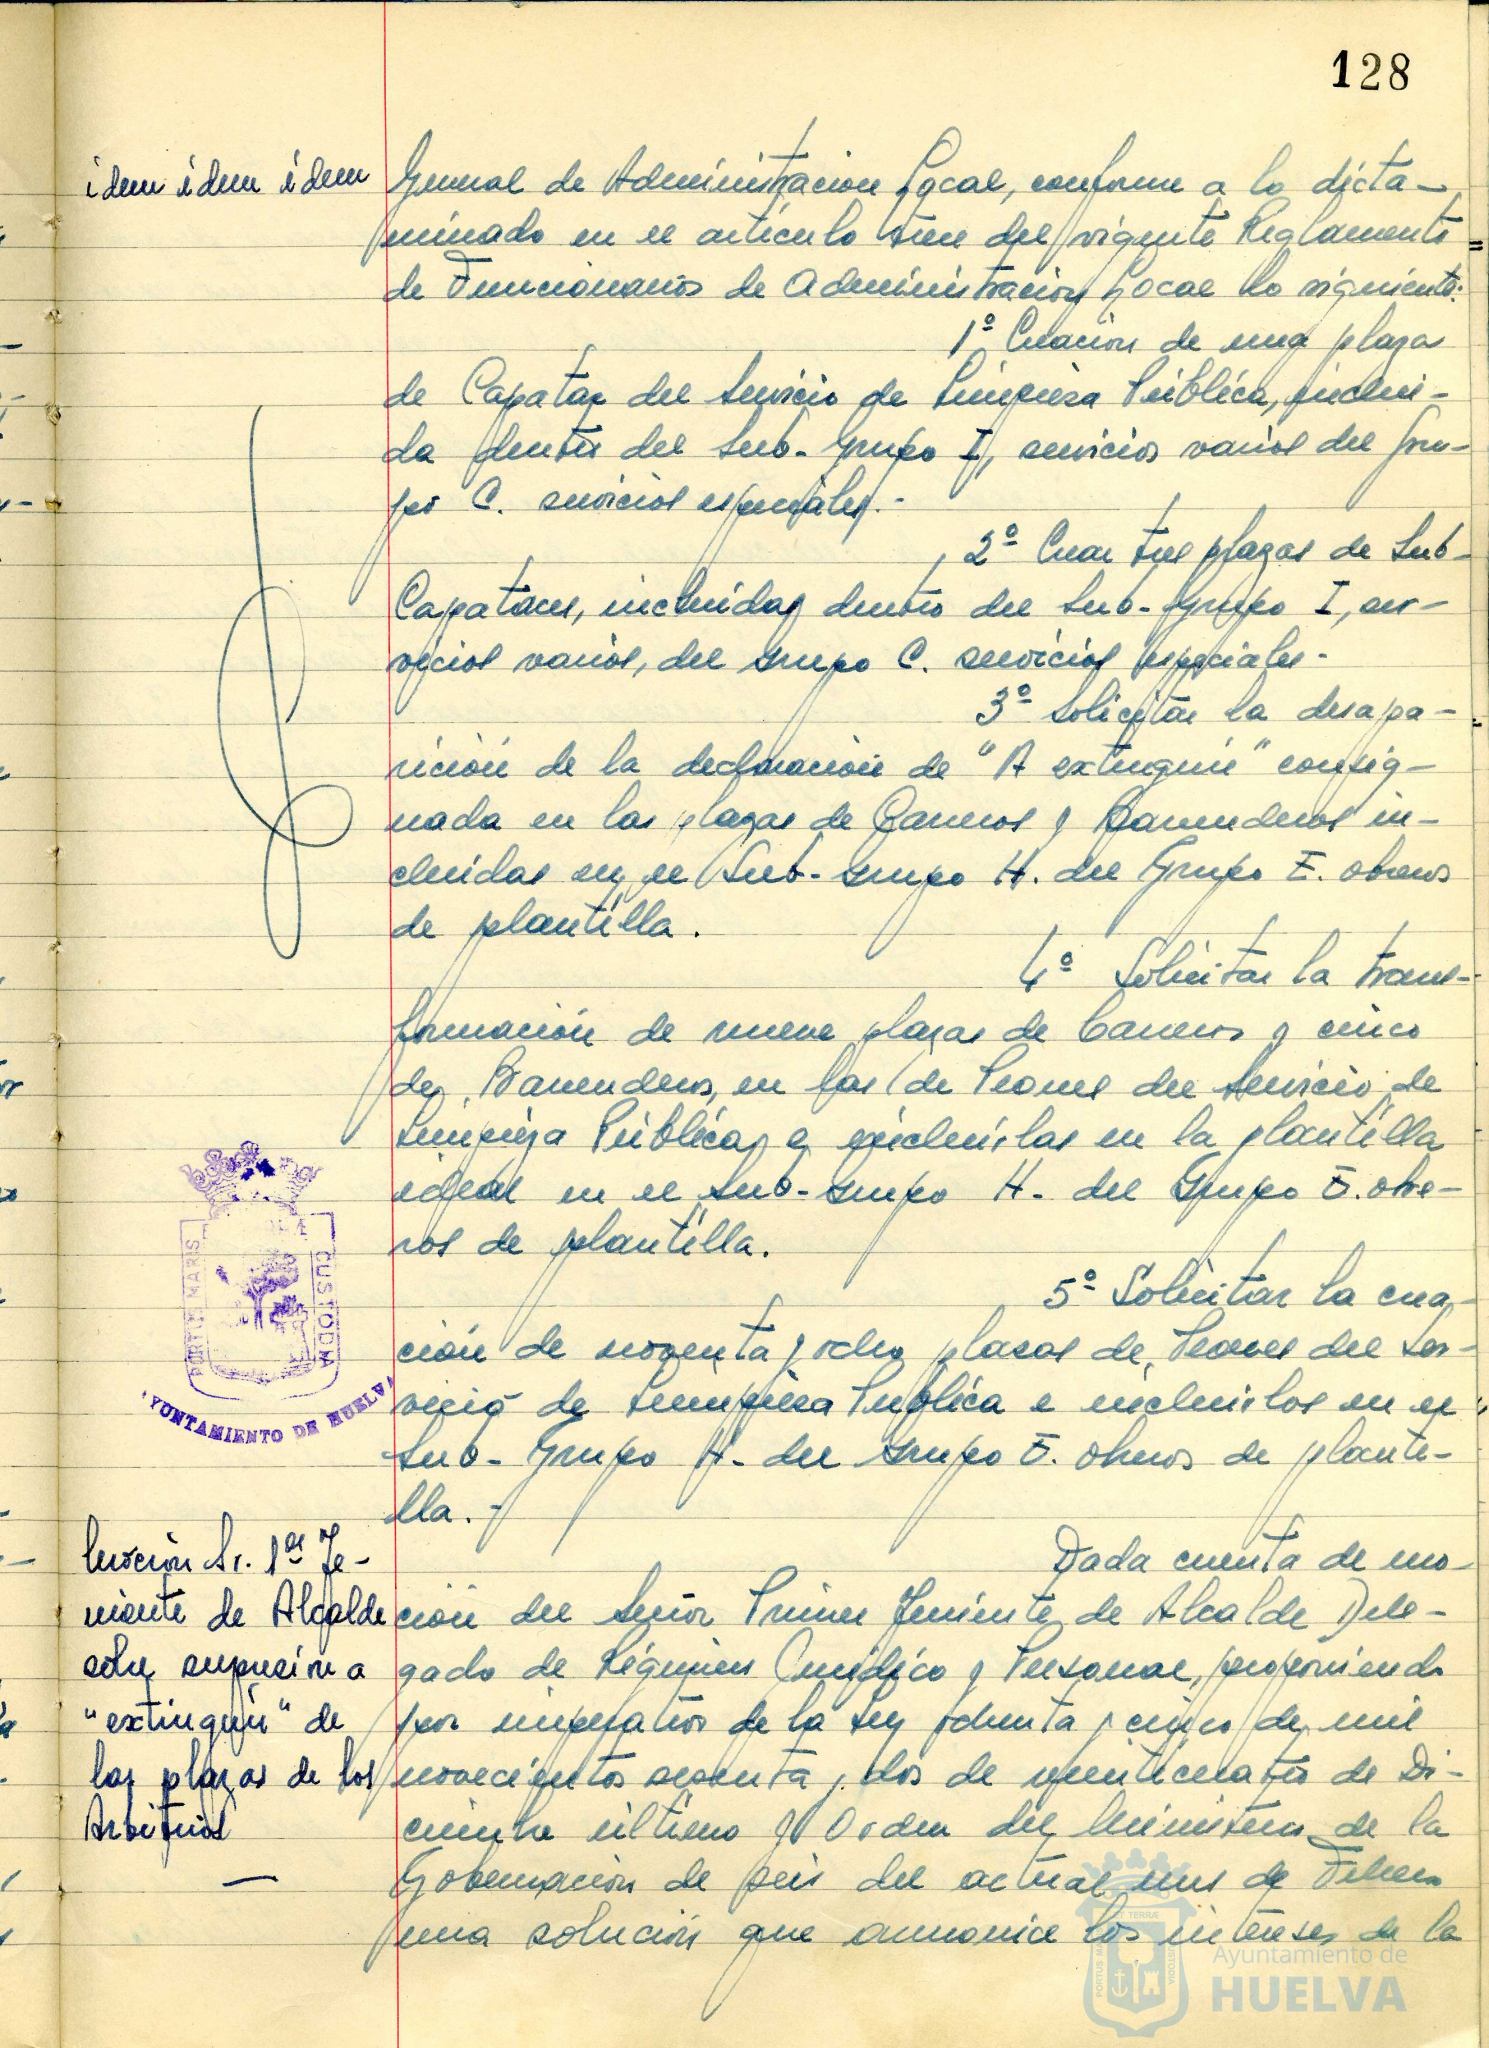 128
idem idem idem
General de Administracion Local, conforme a lo dicta-
minado en el artículo trece del vigente Reglamento
de Funcionarios de Administracion Local lo siguiente:
1º Creación de una plaza
de Capataz del Servicio de Limpieza Pública, inclui-
da dentro del Sub-Grupo I, servicios varios del Gru-
po C. servicios especiales.-
2º Crear tres plazas de Sub-
Capataces, incluidas dentro del Sub-Grupo I, ser-
vicios varios, del Grupo C. servicios especiales-
3º Solicitar la desapa-
rición de la declaración de "A extinguir" consig-
nada en las plazas de Carreros y Barrenderos in-
cluidas en el Sub-Grupo H. del Grupo E. obreros
de plantilla.
4º Solicitar la trans-
formación de nueve plazas de Carreros y cinco
de Barrenderos, en las de Peones del Servicio de
Limpieza Pública, e incluirlas en la plantilla
ideal en el Sub-Grupo H- del Grupo E. obre-
ros de plantilla.
5º Solicitar la crea-
ción de noventa y ocho plazas de Peones del Ser-
vicio de Limpieza Publica e incluirlos en el
Sub-Grupo H- del Grupo E. obreros de planti-
lla.-
PORTUS MARIS
CUSTODIA
AYUNTAMIENTO DE HUELVA
Moción Sr. 1er Te-
niente de Alcalde
sobre supresión a
"extinguir" de
las plazas de los
Arbitrios
Dada cuenta de mo-
ción del Señor Primer Teniente de Alcalde Dele-
gado de Régimen Jurídico y Personal, proponiendo
por imperativo de la Ley ochenta y cinco de mil
novecientos sesenta y dos de veinticuatro de Di-
ciembre último y Orden del Ministerio de la
Gobernación de seis del actual mes de Febrero
una solución que armonice los intereses de la
Ayuntamiento de
HUELVA